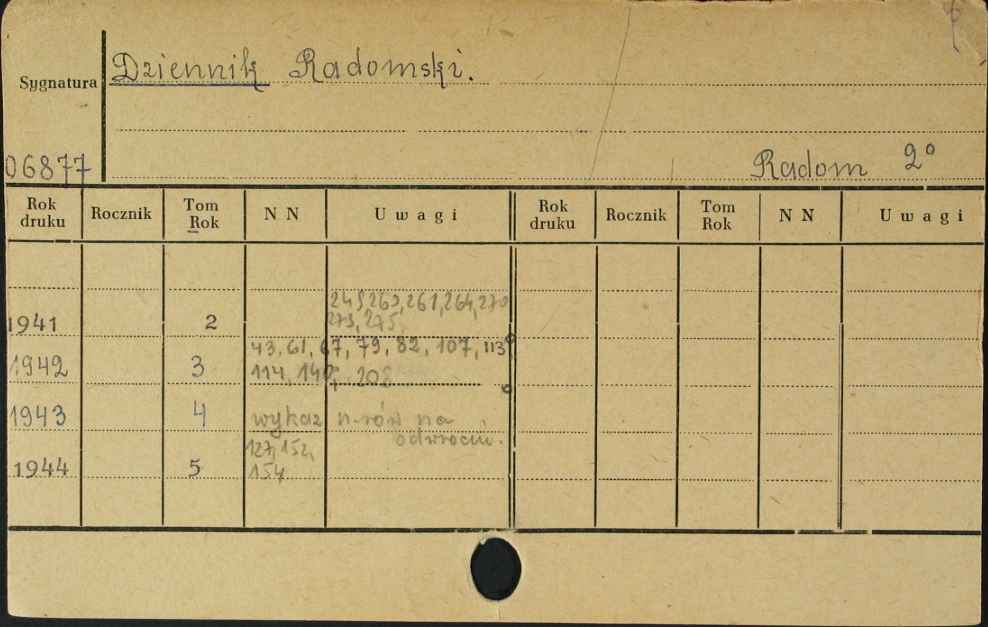 Dziennik Radomski.
Sygnatura
06877
Radom 2°
Rok druku Rocznik Tom Rok N N Uwagi Rok druku Rocznik Tom Rok N N Uwagi
261, 264, 270
1941 2 273, 275,
43, 61, 67, 79, 82, 107, 113
1942 3 114, 140, 208
1943 4 wykaz n-rów na
odwrociu.
127, 152,
1944 5 154